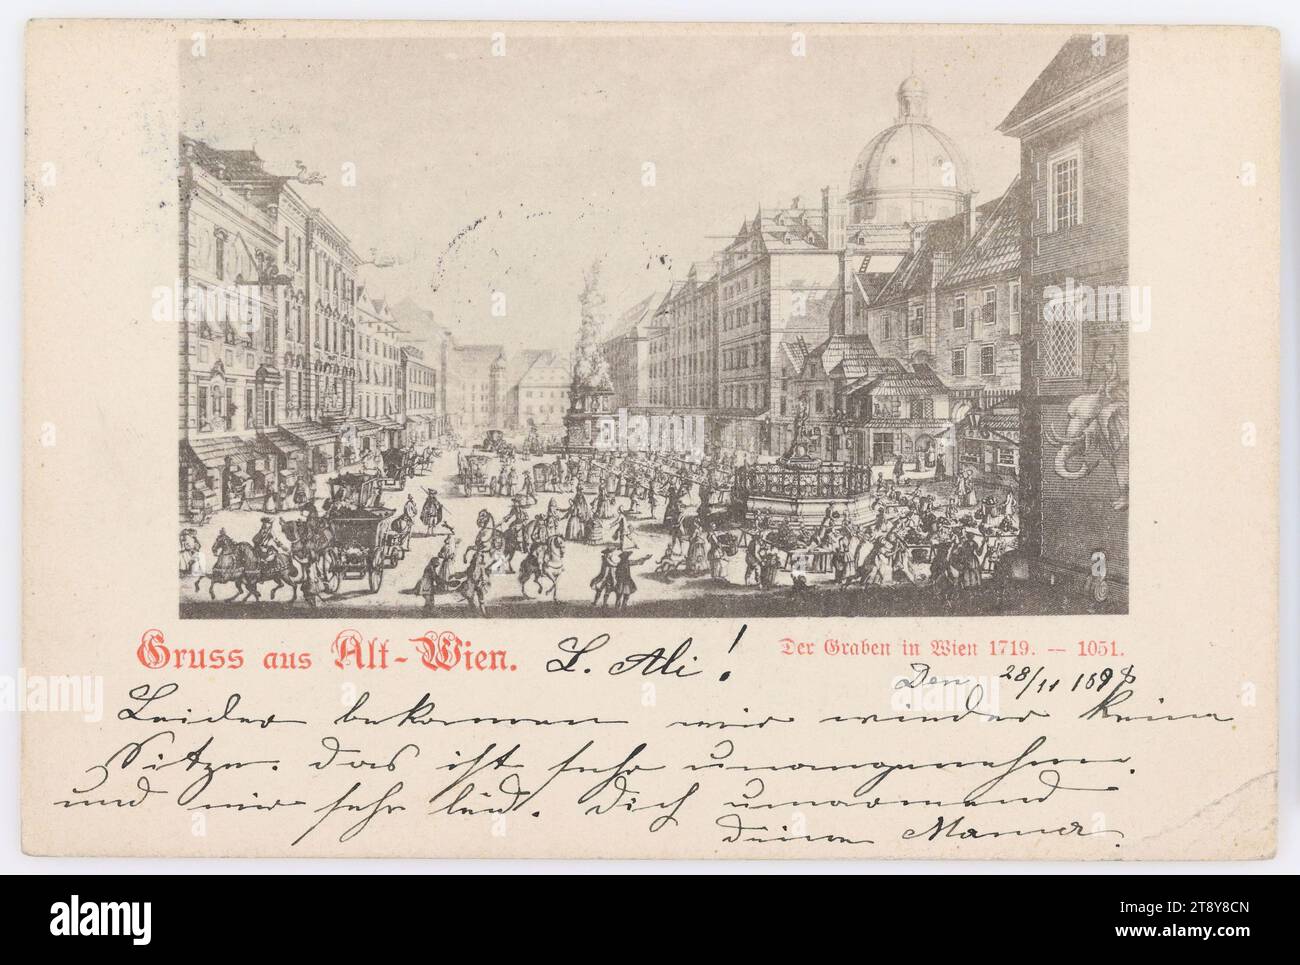 Gruss aus Alt-Wien.
L. Ali!
Der Graben in Wien 1719. — 1051.
Den 28/11 1898
Leider bekommen wir wieder keine
Sitze. Das ist sehr unangenehm.
und mir sehr leid. Dich umarmend
deine Mama.
alamy
Image ID: 2T8Y8CN
www.alamy.com